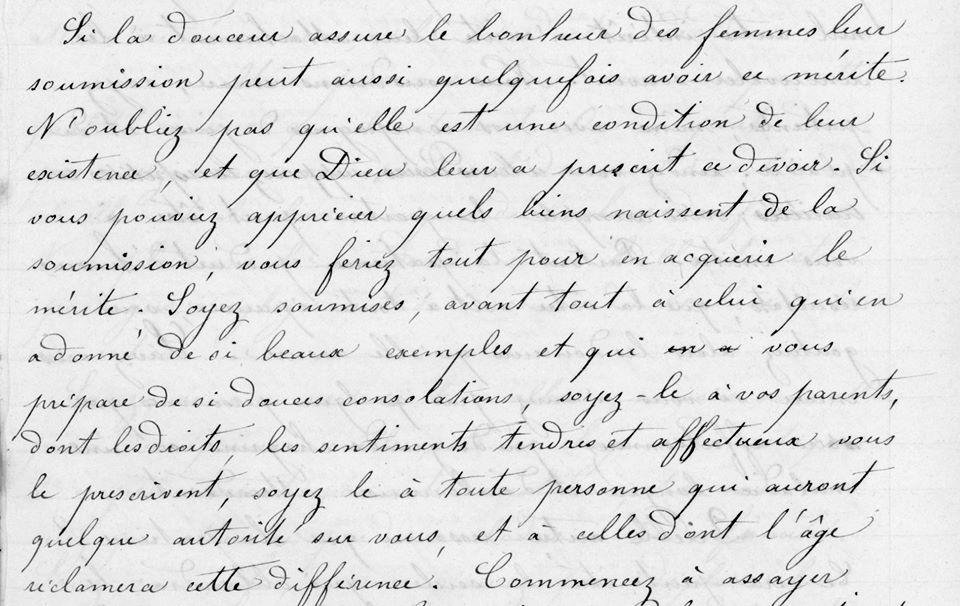 Si la douceur assure le bonheur des femmes leur
soumission peut aussi quelquefois avoir ce mérite.
N'oubliez pas qu'elle est une condition de leur
existence, et que Dieu leur a prescrit ce devoir. Si
vous pouviez apprécier quels biens naissent de la
soumission, vous feriez tout pour en acquérir le
mérite. Soyez soumises, avant tout à celui qui en
a donné de si beaux exemples et qui en a vous
prépare de si douces consolations, soyez-le à vos parents,
dont les droits les sentiments tendres et affectueux vous
le prescrivent, soyez le à toute personne qui auront
quelque autorité sur vous, et à celles dont l'âge
réclamera cette différence. Commencez à assayer